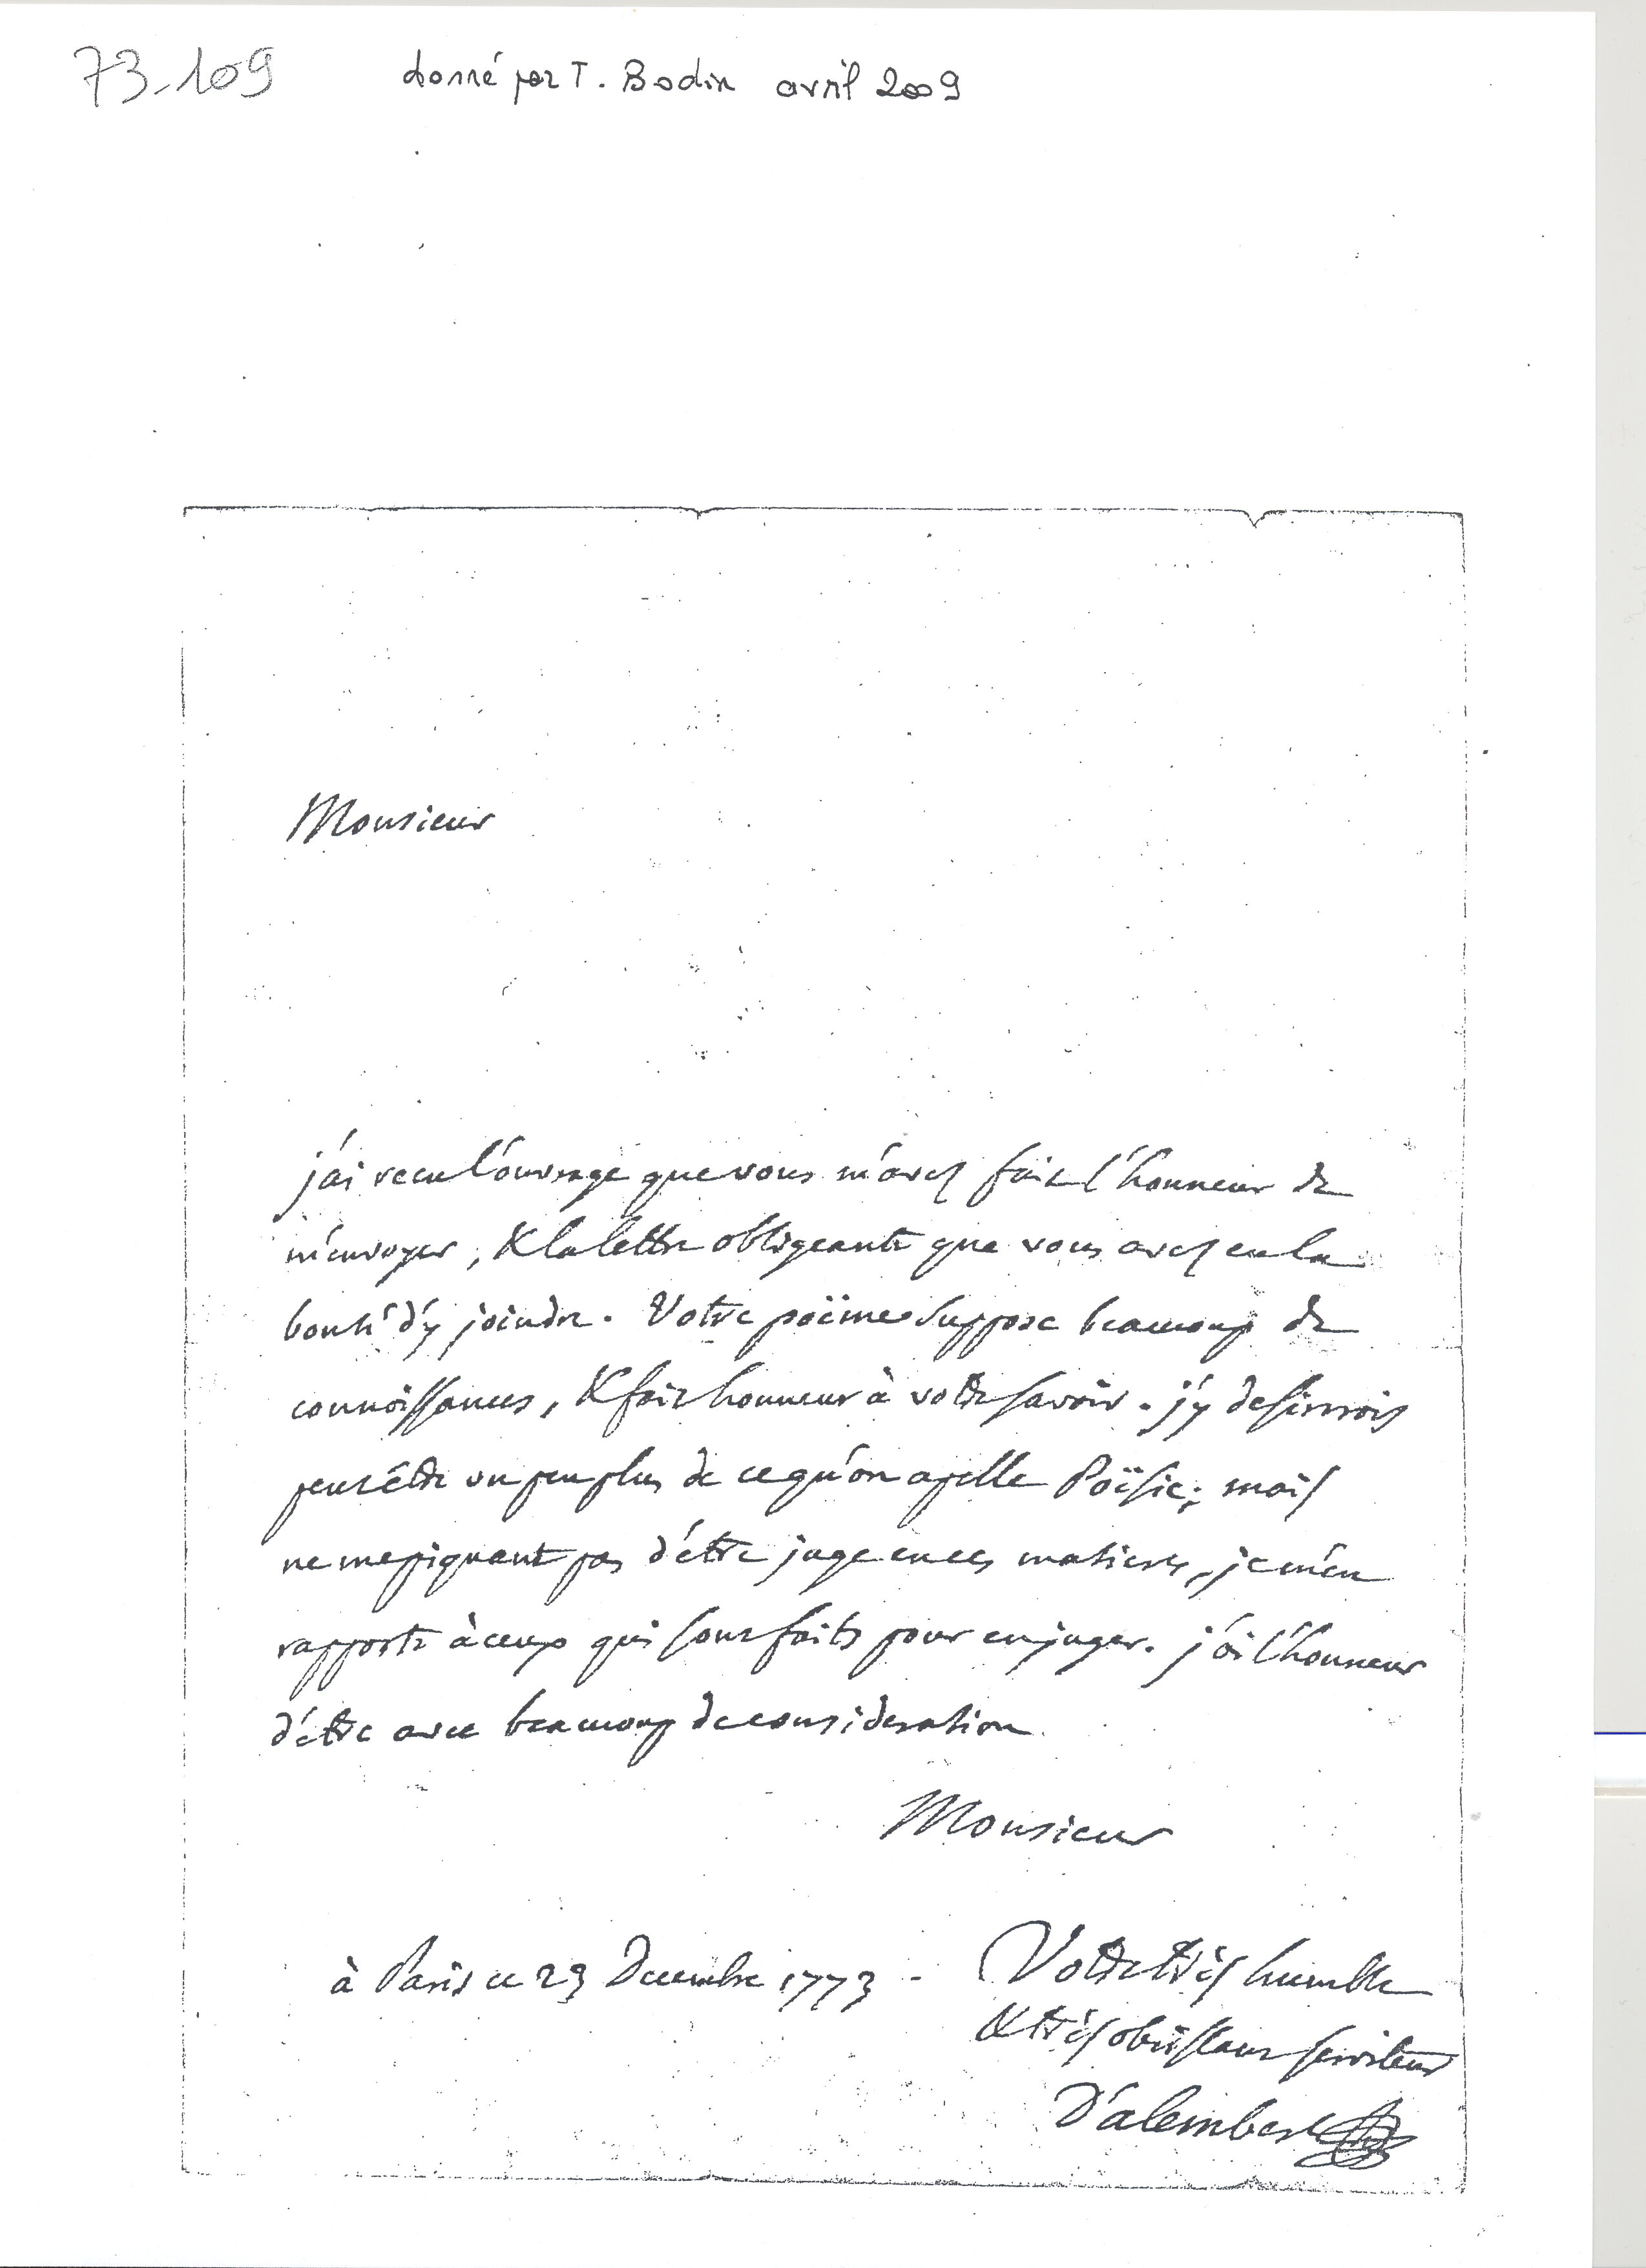 73-109
donné par T. Bodin avril 2009
Monsieur
j'ai recu l'ouvrage que vous m'avez fait l'honneur de
m'envoyer, & la lettre obligeante que vous avez eu la
bonté d'y joindre. Votre poëme suppose beaucoup de
connoissances, & fait honneur à votre savoir. j'y desirerois
peut être un peu plus de ce qu'on apelle Poësie; mais
ne me piquant pas d'être juge en ces matieres, je m'en
rapporte à ceux qui sont faits pour en juger. j'ai l'honneur
d'être avec beaucoup de consideration
Monsieur
à Paris ce 23 Decembre 1773 -
Votre très humble
& très obéissant serviteur
D'alembert